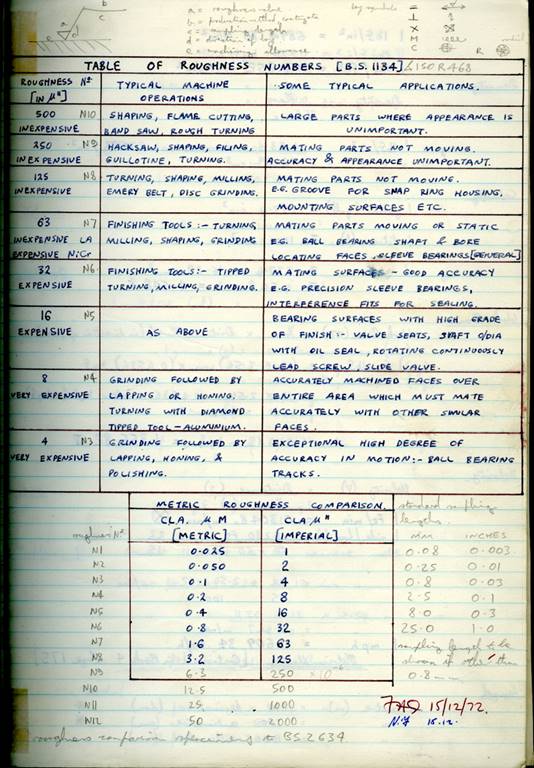 a = roughness value
b = production method, coating etc
c = sampling length
d = direction of lay
e = machining allowance
lay symbols
=
⊥
X
M
C
R
TABLE OF ROUGHNESS NUMBERS [B.S. 1134] & ISO R468
ROUGHNESS Nº [IN µ"]
TYPICAL MACHINE OPERATIONS
SOME TYPICAL APPLICATIONS.
500 N10
INEXPENSIVE
SHAPING, FLAME CUTTING,
BAND SAW, ROUGH TURNING
LARGE PARTS WHERE APPEARANCE IS
UNIMPORTANT.
250 N9
INEXPENSIVE
HACKSAW, SHAPING, FILING,
GUILLOTINE, TURNING.
MATING PARTS NOT MOVING.
ACCURACY & APPEARANCE UNIMPORTANT.
125 N8
INEXPENSIVE
TURNING, SHAPING, MILLING,
EMERY BELT, DISC GRINDING.
MATING PARTS NOT MOVING.
E.G. GROOVE FOR SNAP RING HOUSING,
MOUNTING SURFACES ETC.
63 N7
INEXPENSIVE LA
EXPENSIVE NiCr
FINISHING TOOLS :- TURNING,
MILLING, SHAPING, GRINDING
MATING PARTS MOVING OR STATIC
E.G. BALL BEARING SHAFT & BORE
LOCATING FACES, SLEEVE BEARINGS [GENERAL]
32 N6
EXPENSIVE
FINISHING TOOLS :- TIPPED
TURNING, MILLING, GRINDING.
MATING SURFACES - GOOD ACCURACY
E.G. PRECISION SLEEVE BEARINGS,
INTERFERENCE FITS FOR SEALING.
16 N5
EXPENSIVE
AS ABOVE
BEARING SURFACES WITH HIGH GRADE
OF FINISH :- VALVE SEATS, SHAFT O/DIA
WITH OIL SEAL, ROTATING CONTINUOUSLY
LEAD SCREW SLIDE VALVE.
8 N4
VERY EXPENSIVE
GRINDING FOLLOWED BY
LAPPING OR HONING.
TURNING WITH DIAMOND
TIPPED TOOL - ALUMINIUM.
ACCURATELY MACHINED FACES OVER
ENTIRE AREA WHICH MUST MATE
ACCURATELY WITH OTHER SIMILAR
FACES.
4 N3
VERY EXPENSIVE
GRINDING FOLLOWED BY
LAPPING, HONING, &
POLISHING.
EXCEPTIONAL HIGH DEGREE OF
ACCURACY IN MOTION :- BALL BEARING
TRACKS.
METRIC ROUGHNESS COMPARISON. standard sampling lengths
roughness Nº CLA. µ M [METRIC] CLA µ" [IMPERIAL] MM INCHES
N1 0.025 1 0.08 0.003
N2 0.050 2 0.25 0.01
N3 0.1 4 0.8 0.03
N4 0.2 8 2.5 0.1
N5 0.4 16 8.0 0.3
N6 0.8 32 25.0 1.0
N7 1.6 63 sampling length to be
N8 3.2 125 shown if other than
N9 6.3 250 ×10⁻⁶ 0.8mm
N10 12.5 500
N11 25 1000
N12 50 2000
15/12/72.
15.12.
roughness comparison specimens to BS 2634